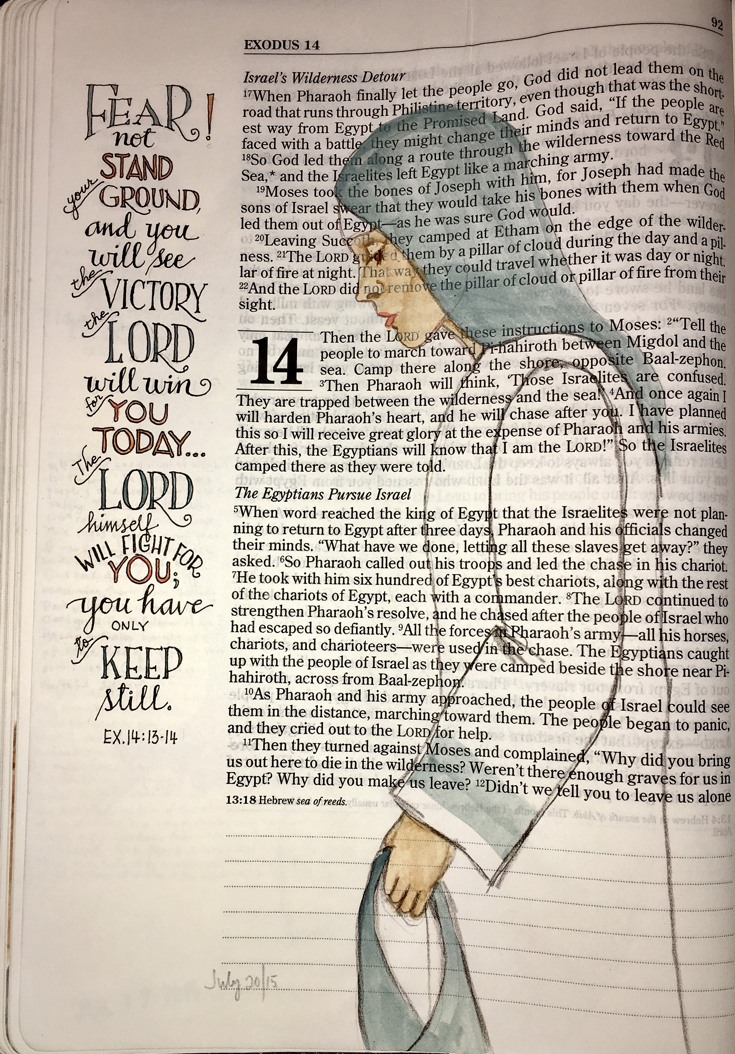 92
EXODUS 14
Israel's Wilderness Detour
17When Pharaoh finally let the people go, God did not lead them on the
road that runs through Philistine territory, even though that was the short-
est way from Egypt to the Promised Land. God said, “If the people are
faced with a battle, they might change their minds and return to Egypt.”
18So God led them along a route through the wilderness toward the Red
Sea,* and the Israelites left Egypt like a marching army.
19Moses took the bones of Joseph with him, for Joseph had made the
sons of Israel swear that they would take his bones with them when God
led them out of Egypt—as he was sure God would.
20Leaving Succoth, they camped at Etham on the edge of the wilder-
ness. 21The LORD guided them by a pillar of cloud during the day and a pil-
lar of fire at night. That way they could travel whether it was day or night.
22And the LORD did not remove the pillar of cloud or pillar of fire from their
sight.
14
Then the LORD gave these instructions to Moses: 2“Tell the
people to march toward Pi-hahiroth between Migdol and the
sea. Camp there along the shore, opposite Baal-zephon.
3Then Pharaoh will think, ‘Those Israelites are confused.
They are trapped between the wilderness and the sea!’ 4And once again I
will harden Pharaoh's heart, and he will chase after you. I have planned
this so I will receive great glory at the expense of Pharaoh and his armies.
After this, the Egyptians will know that I am the LORD!” So the Israelites
camped there as they were told.
The Egyptians Pursue Israel
5When word reached the king of Egypt that the Israelites were not plan-
ning to return to Egypt after three days, Pharaoh and his officials changed
their minds. “What have we done, letting all these slaves get away?” they
asked. 6So Pharaoh called out his troops and led the chase in his chariot.
7He took with him six hundred of Egypt's best chariots, along with the rest
of the chariots of Egypt, each with a commander. 8The LORD continued to
strengthen Pharaoh's resolve, and he chased after the people of Israel who
had escaped so defiantly. 9All the forces in Pharaoh's army—all his horses,
chariots, and charioteers—were used in the chase. The Egyptians caught
up with the people of Israel as they were camped beside the shore near Pi-
hahiroth, across from Baal-zephon.
10As Pharaoh and his army approached, the people of Israel could see
them in the distance, marching toward them. The people began to panic,
and they cried out to the LORD for help.
11Then they turned against Moses and complained, “Why did you bring
us out here to die in the wilderness? Weren't there enough graves for us in
Egypt? Why did you make us leave? 12Didn't we tell you to leave us alone
13:18 Hebrew sea of reeds.
FEAR!
not
STAND
your
GROUND,
and you
will see
the
VICTORY
the
LORD
will win
for
YOU
TODAY...
The
LORD
himself
WILL FIGHT FOR
YOU;
you have
ONLY
to
KEEP
still.
EX.14:13-14
July 20/15